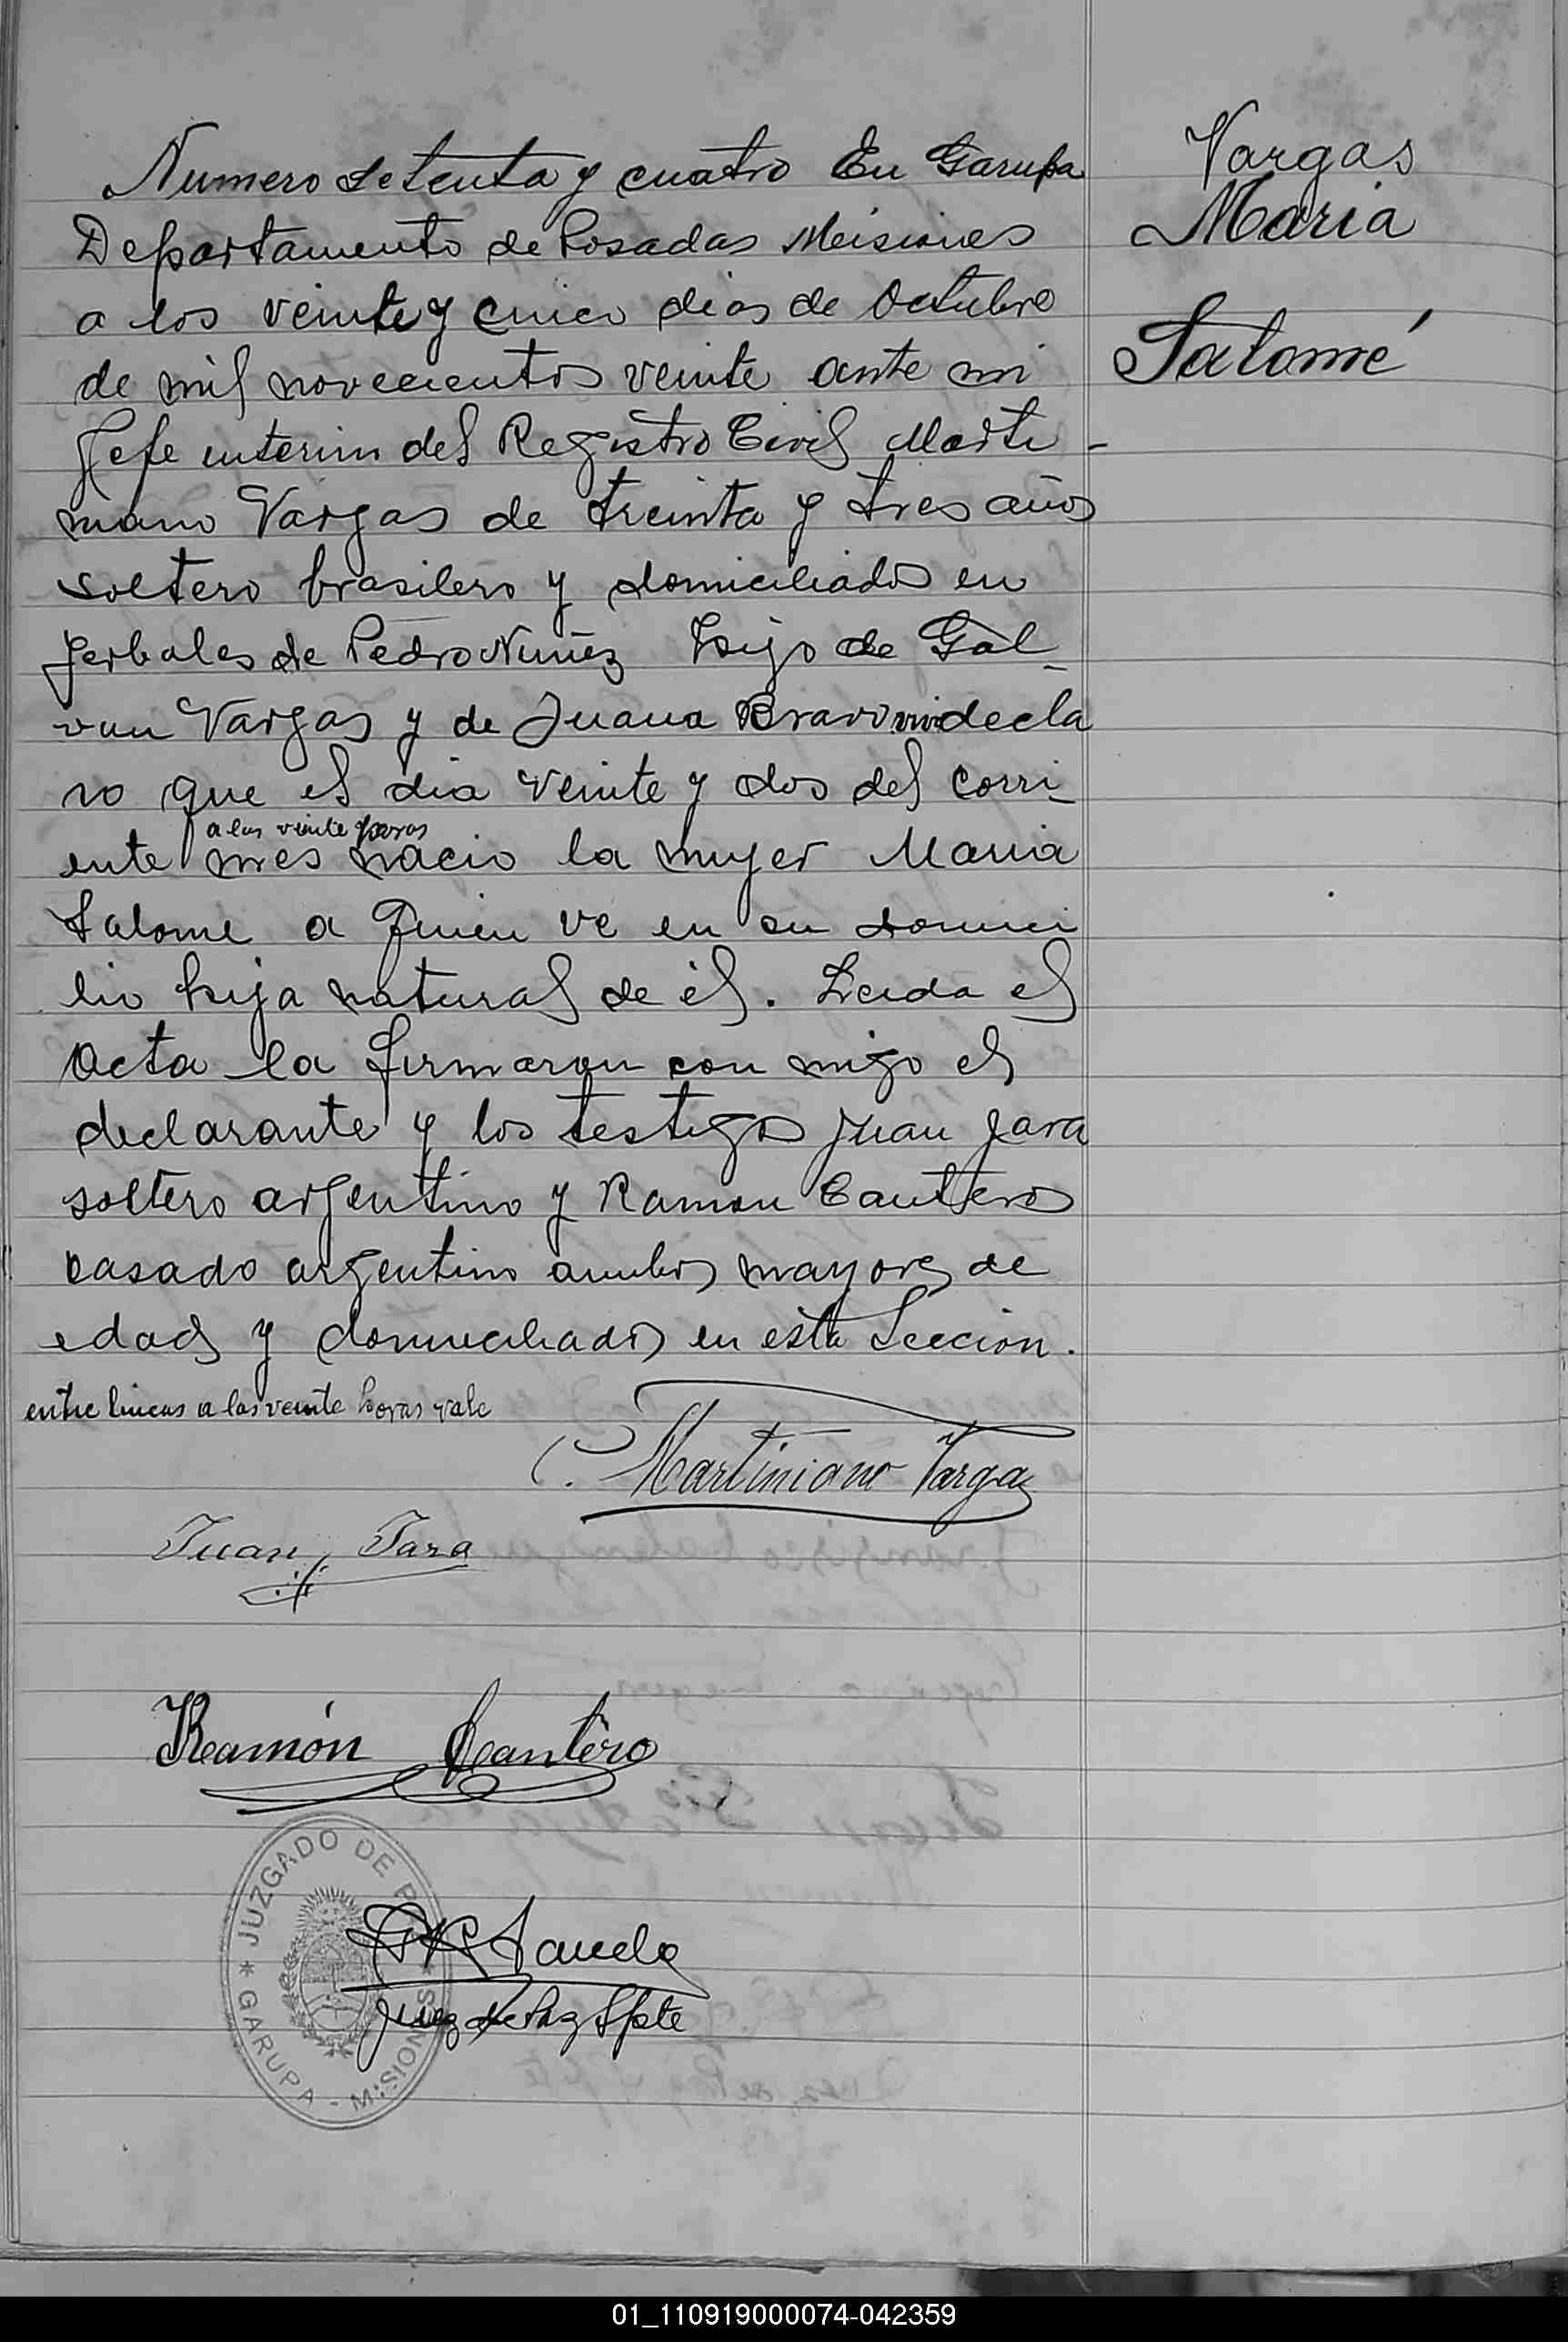 Numero setenta y cuatro En Garupa
Departamento de Posadas Meisiones
a los veinte y cinco dias de Octubre
de mil novecientos veinte ante mi
Jefe interin del Registro Civil Marti-
niano Vargas de treinta y tres años
soltero brasilero y domiciliado en
Yerbales de Pedro Nuñez hijo de Gal-
van Vargas y de Juana Bravo decla
ro que el dia veinte y dos del corri-
a las veinte horas
ente mes nacio la mujer Maria
Salome a quien ve en su domici
lio hija natural de él. Leida el
Acta la firmaron con migo el
declarante y los testigos Juan Jara
soltero argentino y Ramon Cantero
casado argentino ambos mayores de
edad y domiciliados en esta Seccion.
entre lineas a las veinte horas vale
Martiniano Vargas
Juan Jara
Ramón Cantero
Juez de Paz Splte
JUZGADO DE P
* GARUPA - MISIONES *
Vargas
Maria
Salomé
01_110919000074-042359